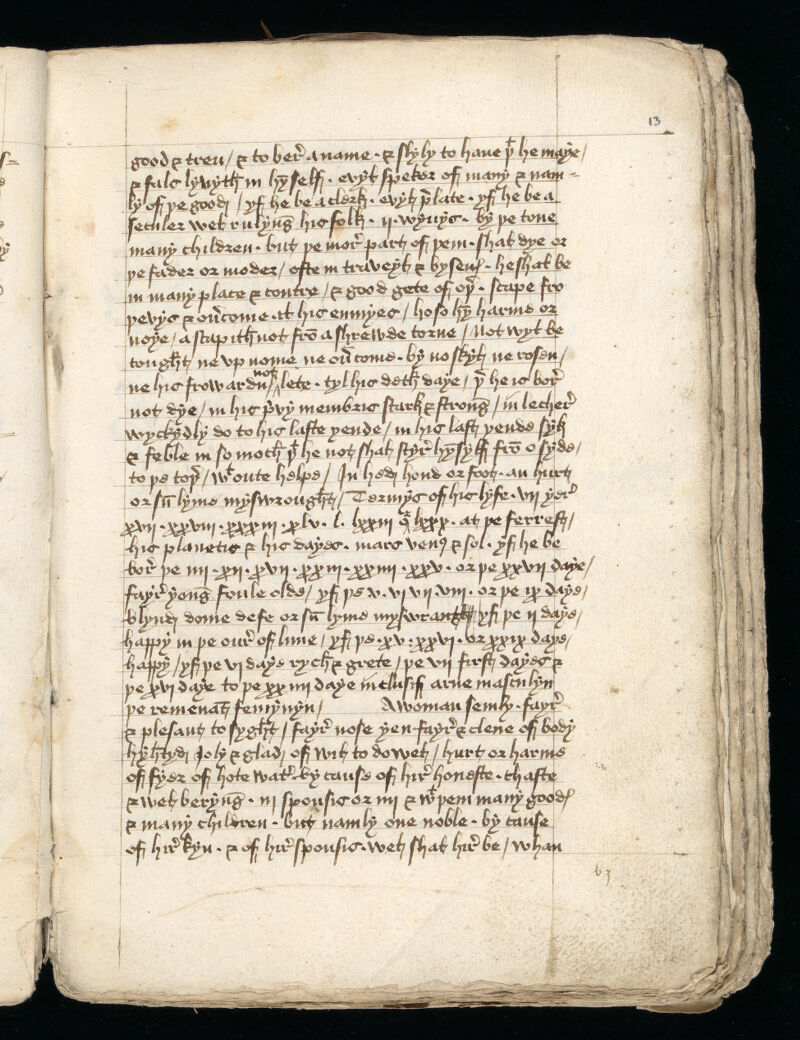 13
good & treu / & to ber̄ a name · & slyly to haue þᵗ he maye /
& fals lywyth in hȳ self · evyl speker off many & nam=
ly off þe good / yf he be a clerk · evyl p̄late · yf he be a
seculer wel rulyng his folk · ii · wyuys · by þe tone
many children · but þe mor̄ part of þem · shal dye or
þe fader or moder / ofte in traveyl & bysenes · he shal be
in many place & contre / & good gete of oþ̄ · scape fro
þevys & ou̅come al his enmyes / hoso hȳ harme or
noye / ascapith not frō a shrewde torne / Not wyl be
tought ne vp nome ne ou̅come · by no skyl ne reson /
ne his froward not lete · tyl his deth daye / þᵗ he is bor̄
not dye / in his p̄vy membris stark & strong / in lecher̄
wyckydly do to his laste yende / in his last yende syk
& feble in so moch þᵗ he not shal styr̄ hȳ sylf frō o syde /
to þe toþ̄ / wᵗ oute helpe / In hed hond or foot · an hurt
or sū lyme myswrought / Termys of his lyfe · vii yer̄
xvii · xxvii · xxxiii · xlv · l · lxxiii or lxxx · at þe ferrest /
his planetis & his dayes · mars venꝰ & sol · yf he be
bor̄ þe iiii · xii · xvii · xxiii · xxiiii · xxv · or þe xxvii daye /
fayr̄ yong foule olde / yf þe v · vi vii viii · or þe ix daye /
blynd dome defe or sū lyme myswrang / yf þe ii daye /
happy in þe our̄ of lime / yf þe · xv · xxvi · or xxix daye /
happy / yf þe vi daye rych & grete / þe vii first dayes &
þe xvi daye to þe xxiiii daye inclusif arne masculyn
þe remenant femynyn / A woman semly · fayr̄
& plesant to syght / fayr̄ nose yen fayr̄ & clene of body
hyhtyd Joly & glad / of wit to do wel / hurt or harme
of fyer of hote wat̄ · by cause of hir̄ honeste · chaste
& wel beryng · iii spousis or iiii & wᵗ þem many good
& many children · but namly one noble · by cause
of hir̄ kyn · & of hir̄ spousis · wel shal hir̄ be / whan
63